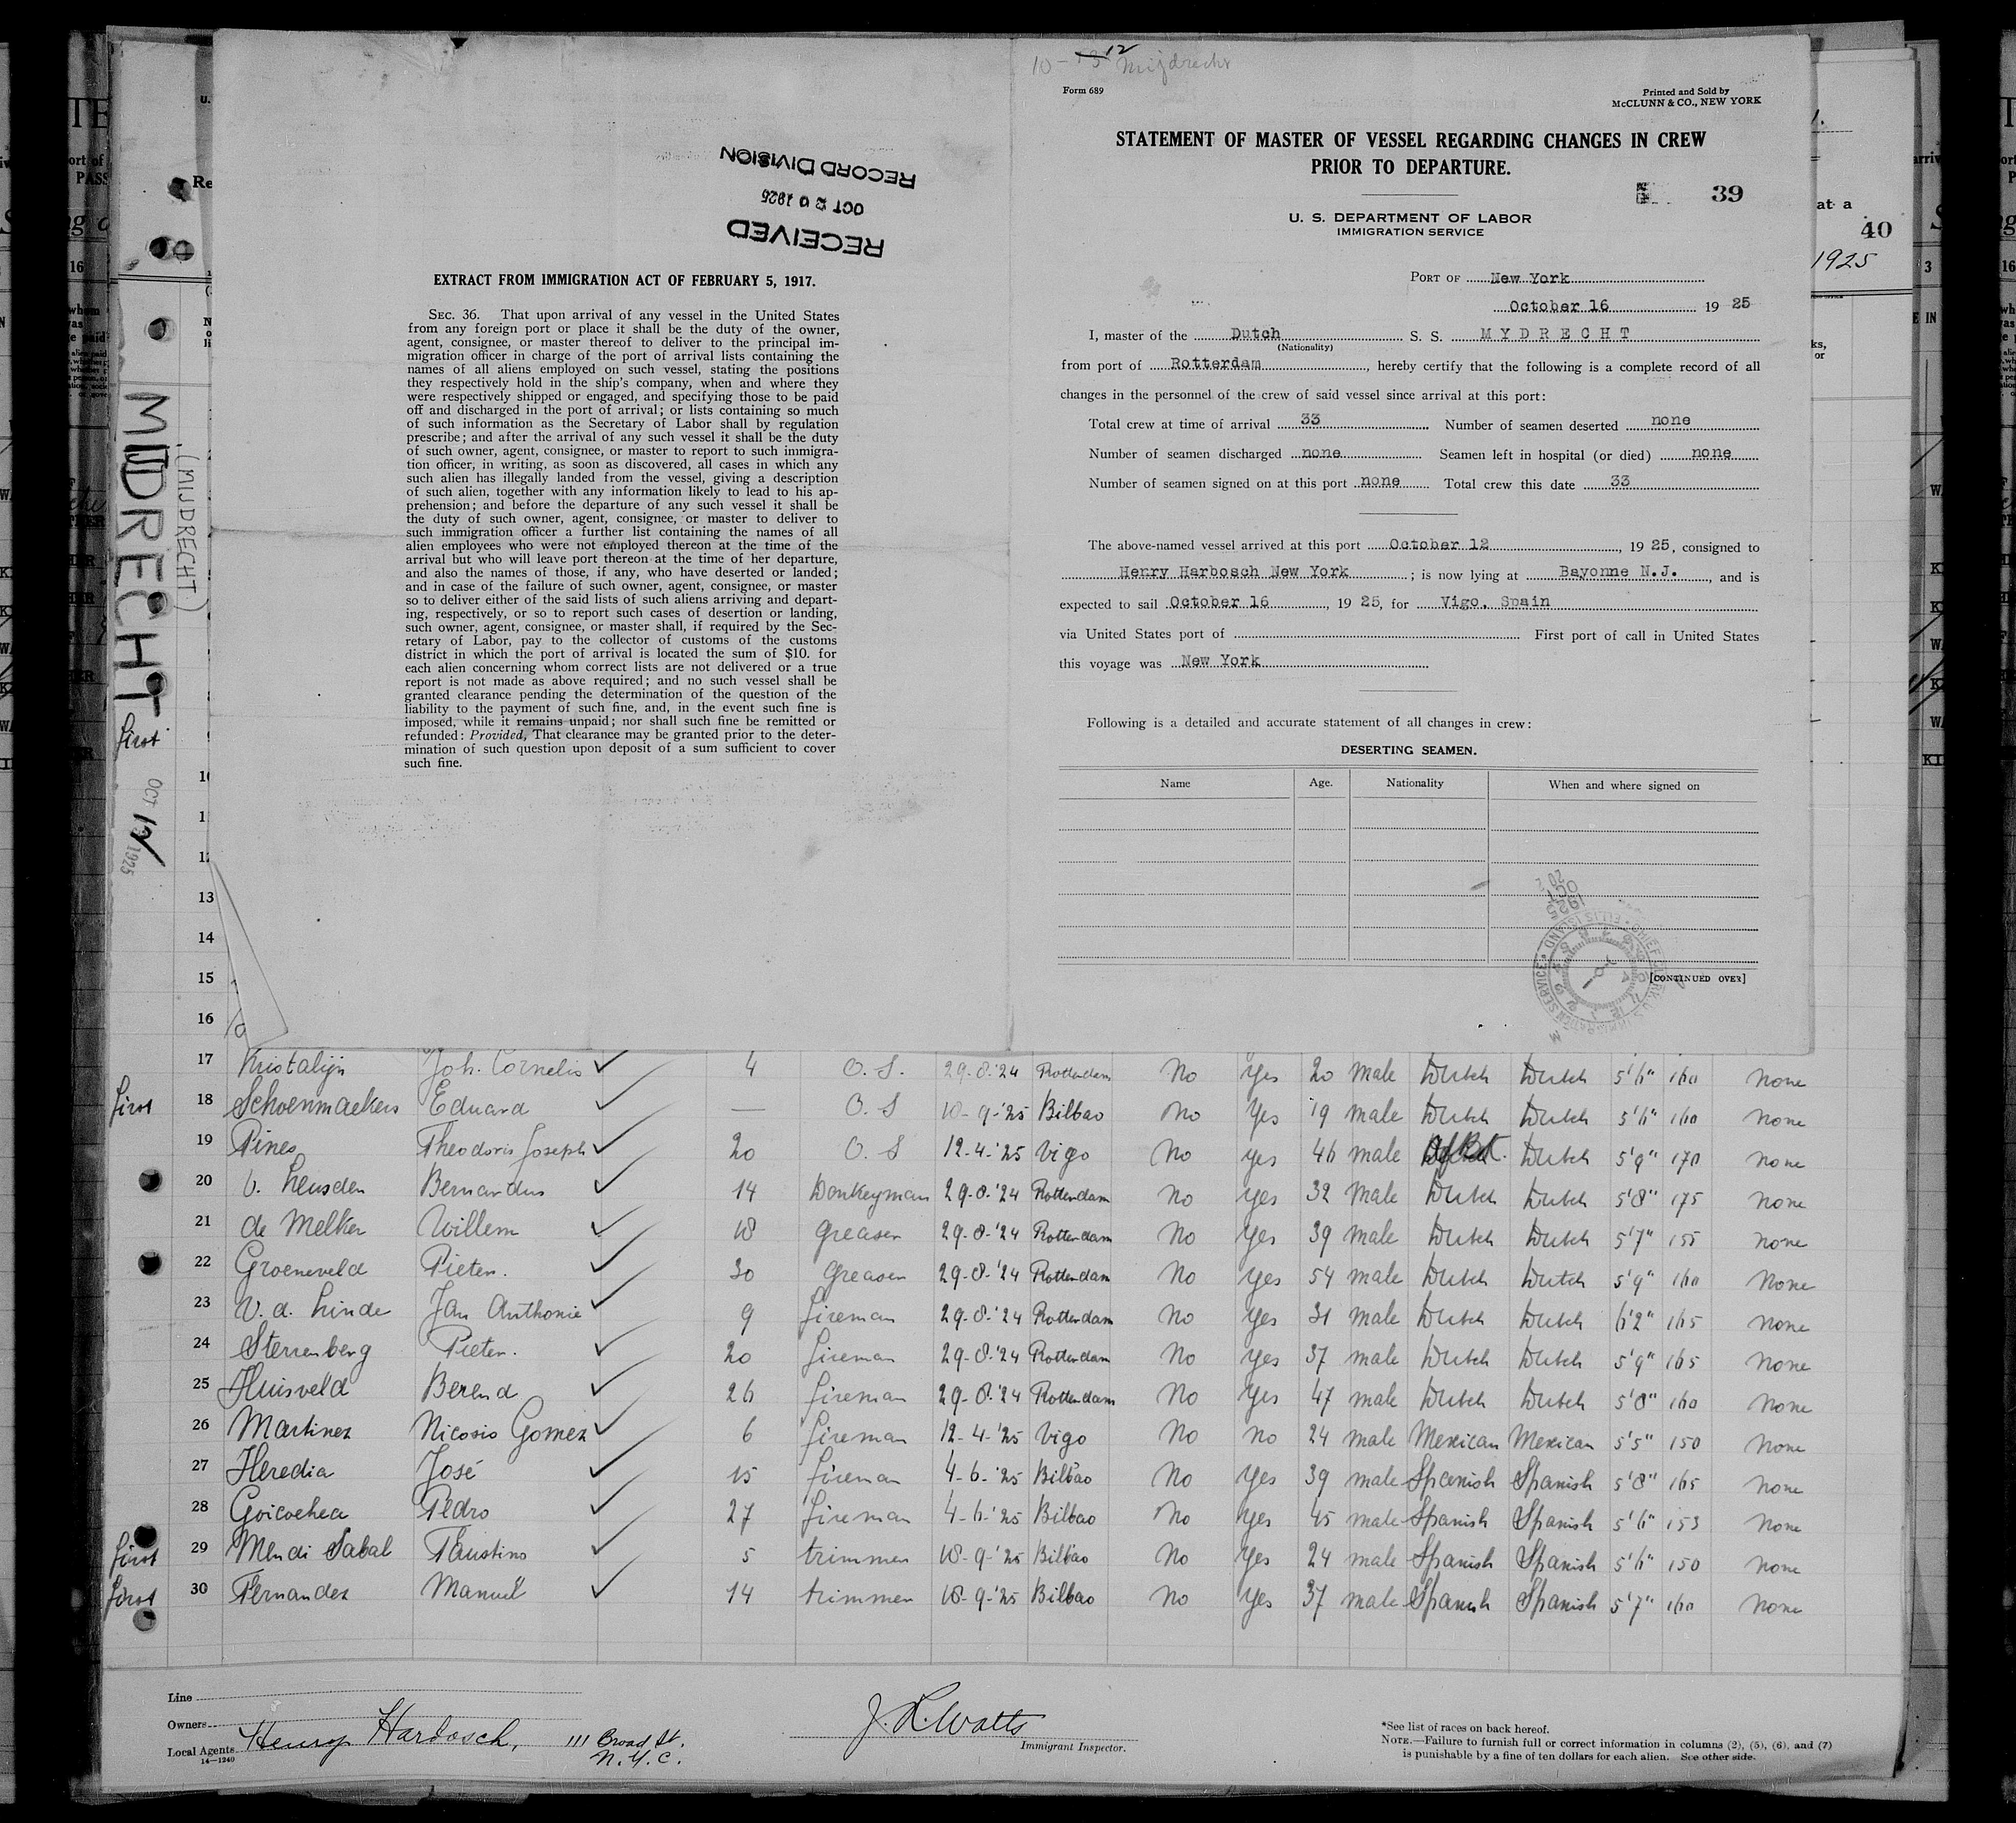 10-12 Mijdrecht
Form 689
Printed and Sold by
McCLUNN & CO., NEW YORK
STATEMENT OF MASTER OF VESSEL REGARDING CHANGES IN CREW
PRIOR TO DEPARTURE.
39
U. S. DEPARTMENT OF LABOR
IMMIGRATION SERVICE
PORT OF New York
October 16 1925
I, master of the Dutch S. S. MYDRECHT
(Nationality)
from port of Rotterdam, hereby certify that the following is a complete record of all
changes in the personnel of the crew of said vessel since arrival at this port:
Total crew at time of arrival 33 Number of seamen deserted none
Number of seamen discharged none Seamen left in hospital (or died) none
Number of seamen signed on at this port none Total crew this date 33
The above-named vessel arrived at this port October 12, 1925, consigned to
Henry Harbosch New York; is now lying at Bayonne N.J., and is
expected to sail October 16, 1925, for Vigo, Spain
via United States port of First port of call in United States
this voyage was New York
Following is a detailed and accurate statement of all changes in crew:
DESERTING SEAMEN.
Name Age. Nationality When and where signed on
[CONTINUED OVER]
RECEIVED
OCT 20 1925
RECORD DIVISION
EXTRACT FROM IMMIGRATION ACT OF FEBRUARY 5, 1917.
SEC. 36. That upon arrival of any vessel in the United States
from any foreign port or place it shall be the duty of the owner,
agent, consignee, or master thereof to deliver to the principal im-
migration officer in charge of the port of arrival lists containing the
names of all aliens employed on such vessel, stating the positions
they respectively hold in the ship's company, when and where they
were respectively shipped or engaged, and specifying those to be paid
off and discharged in the port of arrival; or lists containing so much
of such information as the Secretary of Labor shall by regulation
prescribe; and after the arrival of any such vessel it shall be the duty
of such owner, agent, consignee, or master to report to such immigra-
tion officer, in writing, as soon as discovered, all cases in which any
such alien has illegally landed from the vessel, giving a description
of such alien, together with any information likely to lead to his ap-
prehension; and before the departure of any such vessel it shall be
the duty of such owner, agent, consignee, or master to deliver to
such immigration officer a further list containing the names of all
alien employees who were not employed thereon at the time of the
arrival but who will leave port thereon at the time of her departure,
and also the names of those, if any, who have deserted or landed;
and in case of the failure of such owner, agent, consignee, or master
so to deliver either of the said lists of such aliens arriving and depart-
ing, respectively, or so to report such cases of desertion or landing,
such owner, agent, consignee, or master shall, if required by the Sec-
retary of Labor, pay to the collector of customs of the customs
district in which the port of arrival is located the sum of $10. for
each alien concerning whom correct lists are not delivered or a true
report is not made as above required; and no such vessel shall be
granted clearance pending the determination of the question of the
liability to the payment of such fine, and, in the event such fine is
imposed, while it remains unpaid; nor shall such fine be remitted or
refunded: Provided, That clearance may be granted prior to the deter-
mination of such question upon deposit of a sum sufficient to cover
such fine.
at a
40
1925
MIJDRECHT
(MIJDRECHT)
first
OCT 12 1925
13
14
15
16
17 Kristalijn Joh. Cornelis 4 O.S. 29-8-'24 Rotterdam No Yes 20 male Dutch Dutch 5'6" 160 None
first 18 Schoenmaekers Eduard — O.S 18-9-'25 Bilbao No Yes 19 male Dutch Dutch 5'6" 160 None
19 Pines Theodoris Joseph 20 O.S 12-4-'25 Vigo No yes 46 male Dutch 5'9" 170 None
20 v. Heusden Bernardus 14 Donkeyman 29-8-'24 Rotterdam No Yes 32 male Dutch Dutch 5'8" 175 None
21 de Melker Willem 18 greaser 29-8-'24 Rotterdam No Yes 39 male Dutch Dutch 5'7" 155 None
22 Groeneveld Pieter. 30 greaser 29-8-'24 Rotterdam No Yes 54 male Dutch Dutch 5'9" 160 None
23 v.d. Linde Jan Anthonie 9 fireman 29-8-'24 Rotterdam No Yes 31 male Dutch Dutch 6'2" 165 None
24 Sterrenberg Pieter. 20 fireman 29-8-'24 Rotterdam No Yes 37 male Dutch Dutch 5'9" 165 None
25 Huisveld Berend 26 fireman 29-8-'24 Rotterdam No Yes 47 male Dutch Dutch 5'8" 160 None
26 Martinez Nicosio Gomez 6 fireman 12-4-'25 Vigo No no 24 male Mexican Mexican 5'5" 150 None
27 Heredia José 15 fireman 4-6-'25 Bilbao No Yes 39 male Spanish Spanish 5'8" 165 None
28 Goicoehea Pedro 27 fireman 4-6-'25 Bilbao No Yes 45 male Spanish Spanish 5'6" 153 None
first 29 Mendi Sabal Faustino 5 trimmer 18-9-'25 Bilbao No Yes 24 male Spanish Spanish 5'6" 150 None
first 30 Fernandez Manuel 14 trimmer 18-9-'25 Bilbao No Yes 37 male Spanish Spanish 5'7" 160 None
Line
Owners
Local Agents Henry Harbosch, 111 Broad St.
N.Y.C.
14—1240
J. L. Watts
Immigrant Inspector.
*See list of races on back hereof.
NOTE.—Failure to furnish full or correct information in columns (2), (5), (6), and (7)
is punishable by a fine of ten dollars for each alien. See other side.